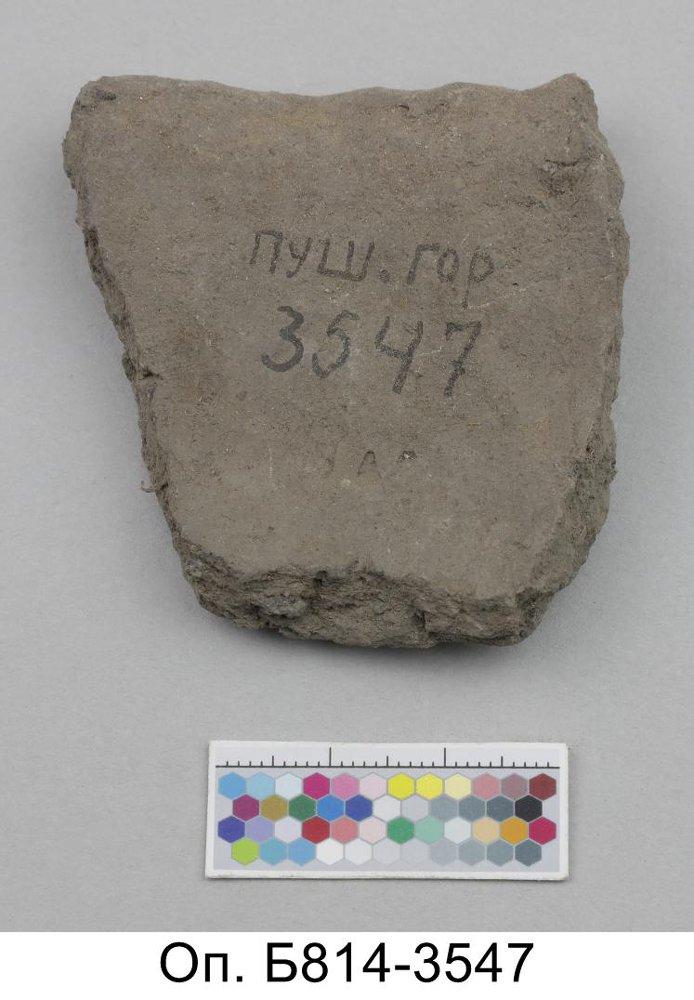 ПУШ. ГОР
3547
Оп. Б814-3547